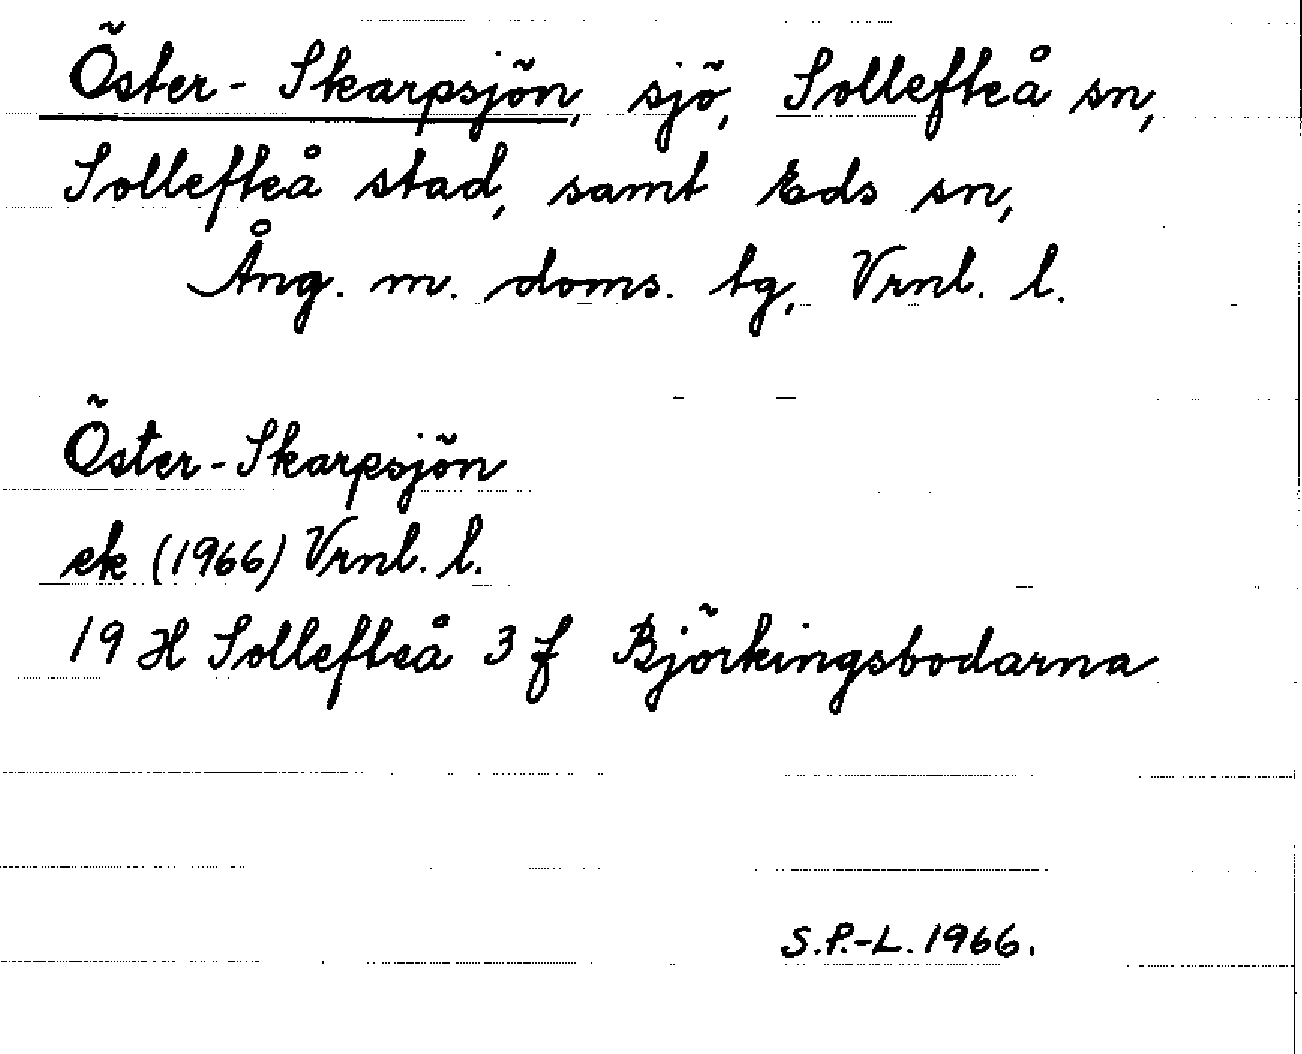 Öster-Skarpsjön, sjö, Sollefteå sn,
Sollefteå stad, samt Eds sn,
Ång. m. doms. tg, Vrnl. l.
Öster-Skarpsjön
ek (1966) Vrnl. l.
19 H Sollefteå 3 f Björkingsbodarna
S.P.-L. 1966.